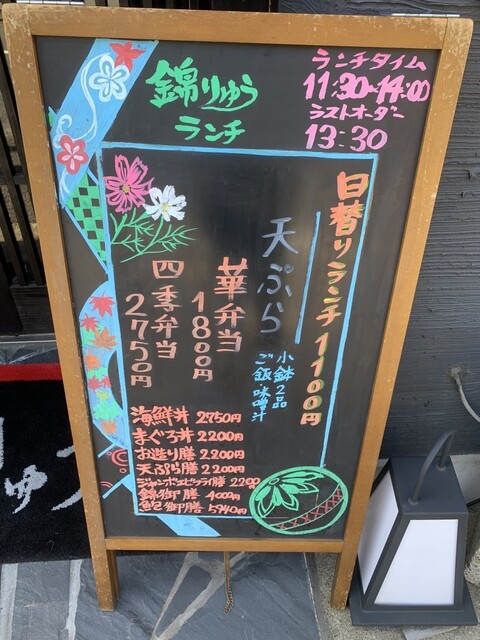 錦りゅう
ランチ
ランチタイム
11:30~14:00
ラストオーダー
13:30
日替りランチ 1100円
天ぷら
小鉢2品
ご飯・味噌汁
華弁当
1800円
四季弁当
2750円
海鮮丼 2750円
まぐろ丼 2200円
お造り膳 2200円
天ぷら膳 2200円
ジャンボエビフライ膳 2200
錦御膳 4000円
鮑御膳 5940円
りゅう